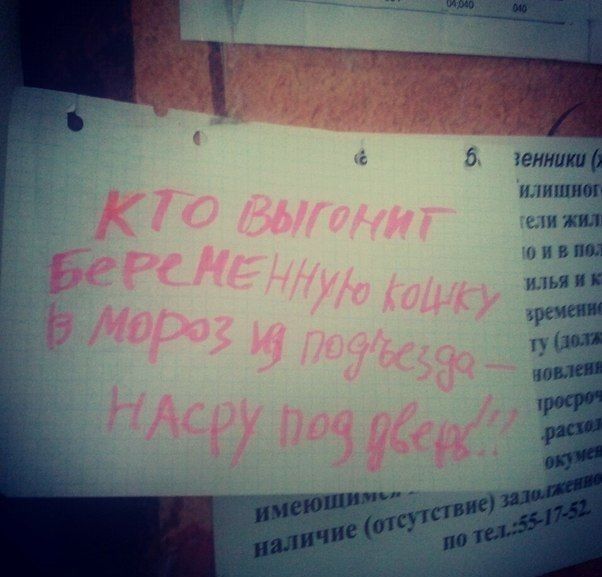 04,040 040
КТО ВЫГОНИТ
БЕРЕМЕННУЮ КОШКУ
В МОРОЗ ИЗ ПОДЪЕЗДА —
НАСРУ ПОД ДВЕРЬ!!!
б. венники (
илищног
ели жил
о и в пол
илья и к
временно
ту (долж
новлен
просроч
расхол
окумен
имеющимся
наличие (отсутствие) задолженно
по тел.:55-17-52.